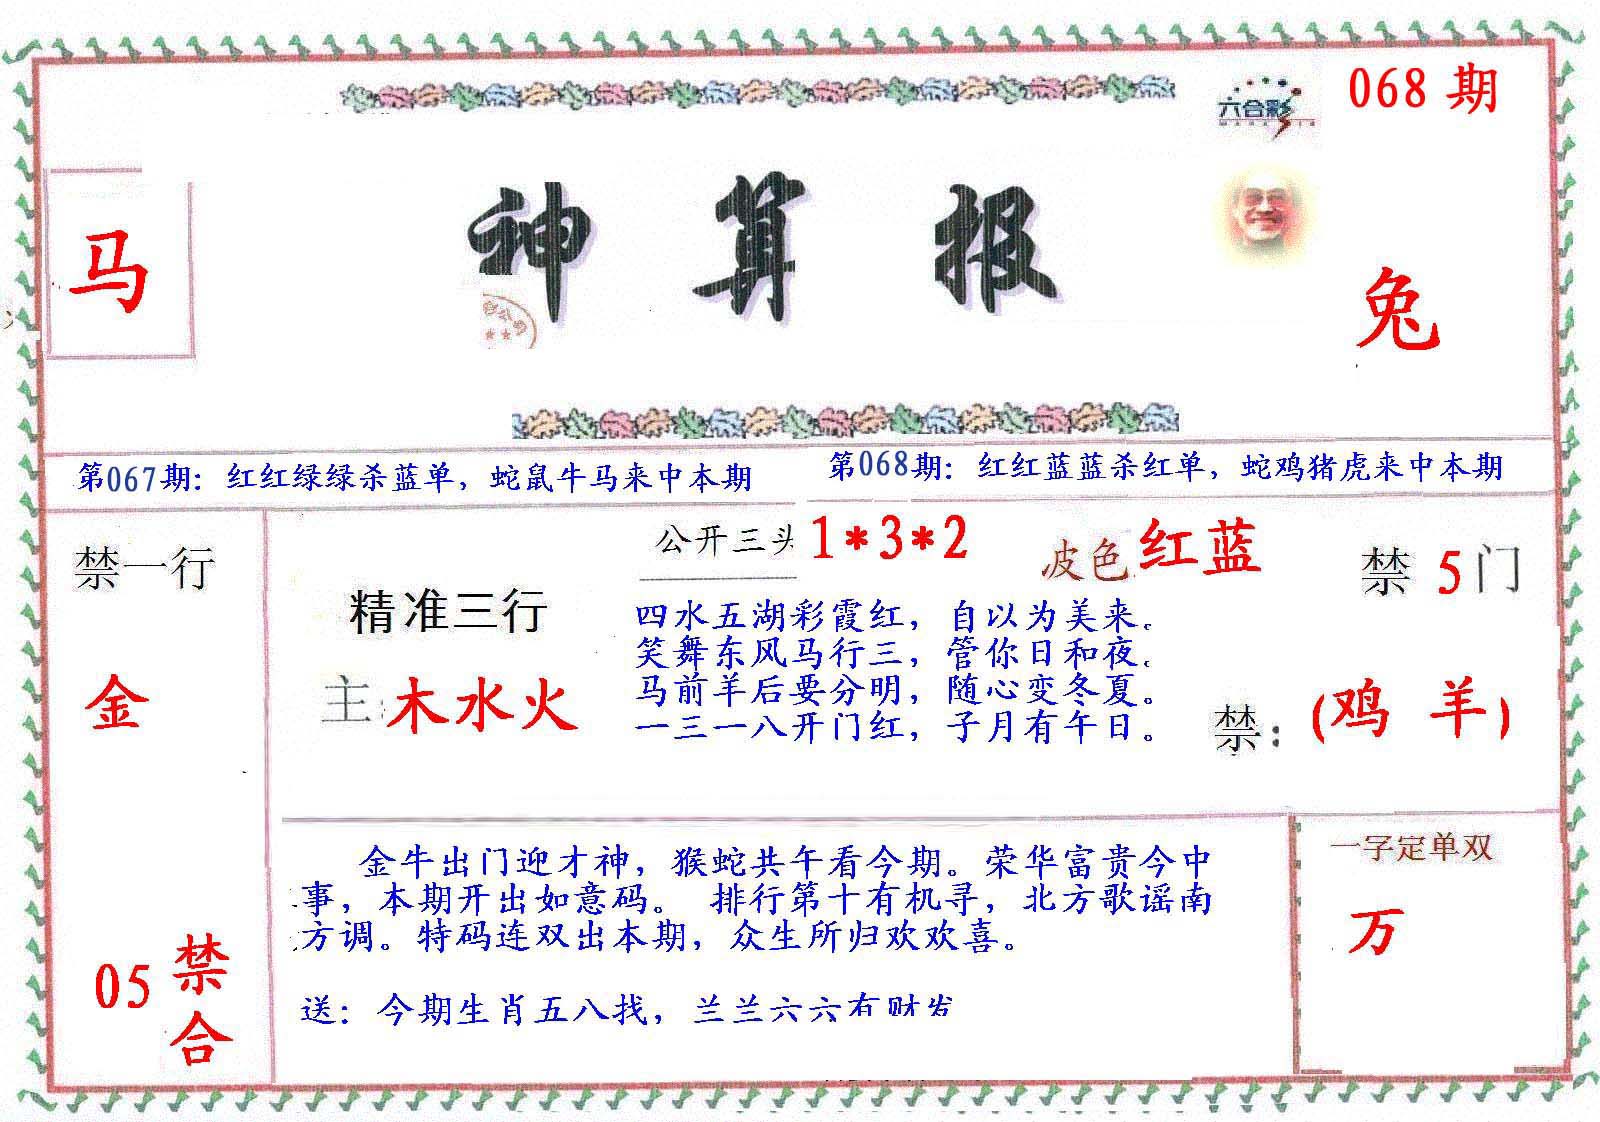 六合彩
068 期
神算报
马
兔
第067期：红红绿绿杀蓝单，蛇鼠牛马来中本期
第068期：红红蓝蓝杀红单，蛇鸡猪虎来中本期
禁一行
金
05 禁合
精准三行
主:木水火
公开三头 1*3*2
皮色 红蓝
禁 5 门
四水五湖彩霞红，自以为美来。
笑舞东风马行三，管你日和夜。
马前羊后要分明，随心变冬夏。
一三一八开门红，子月有午日。
禁：(鸡 羊)
金牛出门迎才神，猴蛇共午看今期。荣华富贵今中
事，本期开出如意码。 排行第十有机寻，北方歌谣南
方调。特码连双出本期，众生所归欢欢喜。
送：今期生肖五八找，兰兰六六有财发
一字定单双
万